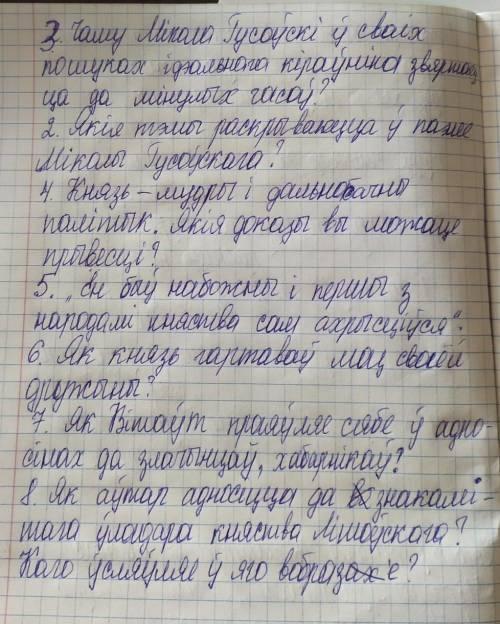 3. Чаму Мікола Гусоўскі ў сваіх
пошуках ідэальнага кіраўніка звяртаец
ца да мінулых часоў?
2. Якія тэмы раскрываюцца ў паэме
Міколы Гусоўскага?
4. Князь – мудры і дальнабачны
палітык. Якія доказы вы можаце
прывесці?
5. „Ён быў набожны і першы з
народамі княства сам ахрысціўся".
6 Як князь гартаваў моц сваёй
дружыны?
7. Як Вітаўт праяўляе сябе ў адно-
сінах да злачынцаў, хабарнікаў?
8. Як аўтар адносіцца да знакамі-
тага ўладара княства Літоўскага?
Каго ўслаўляе ў яго вобразе?